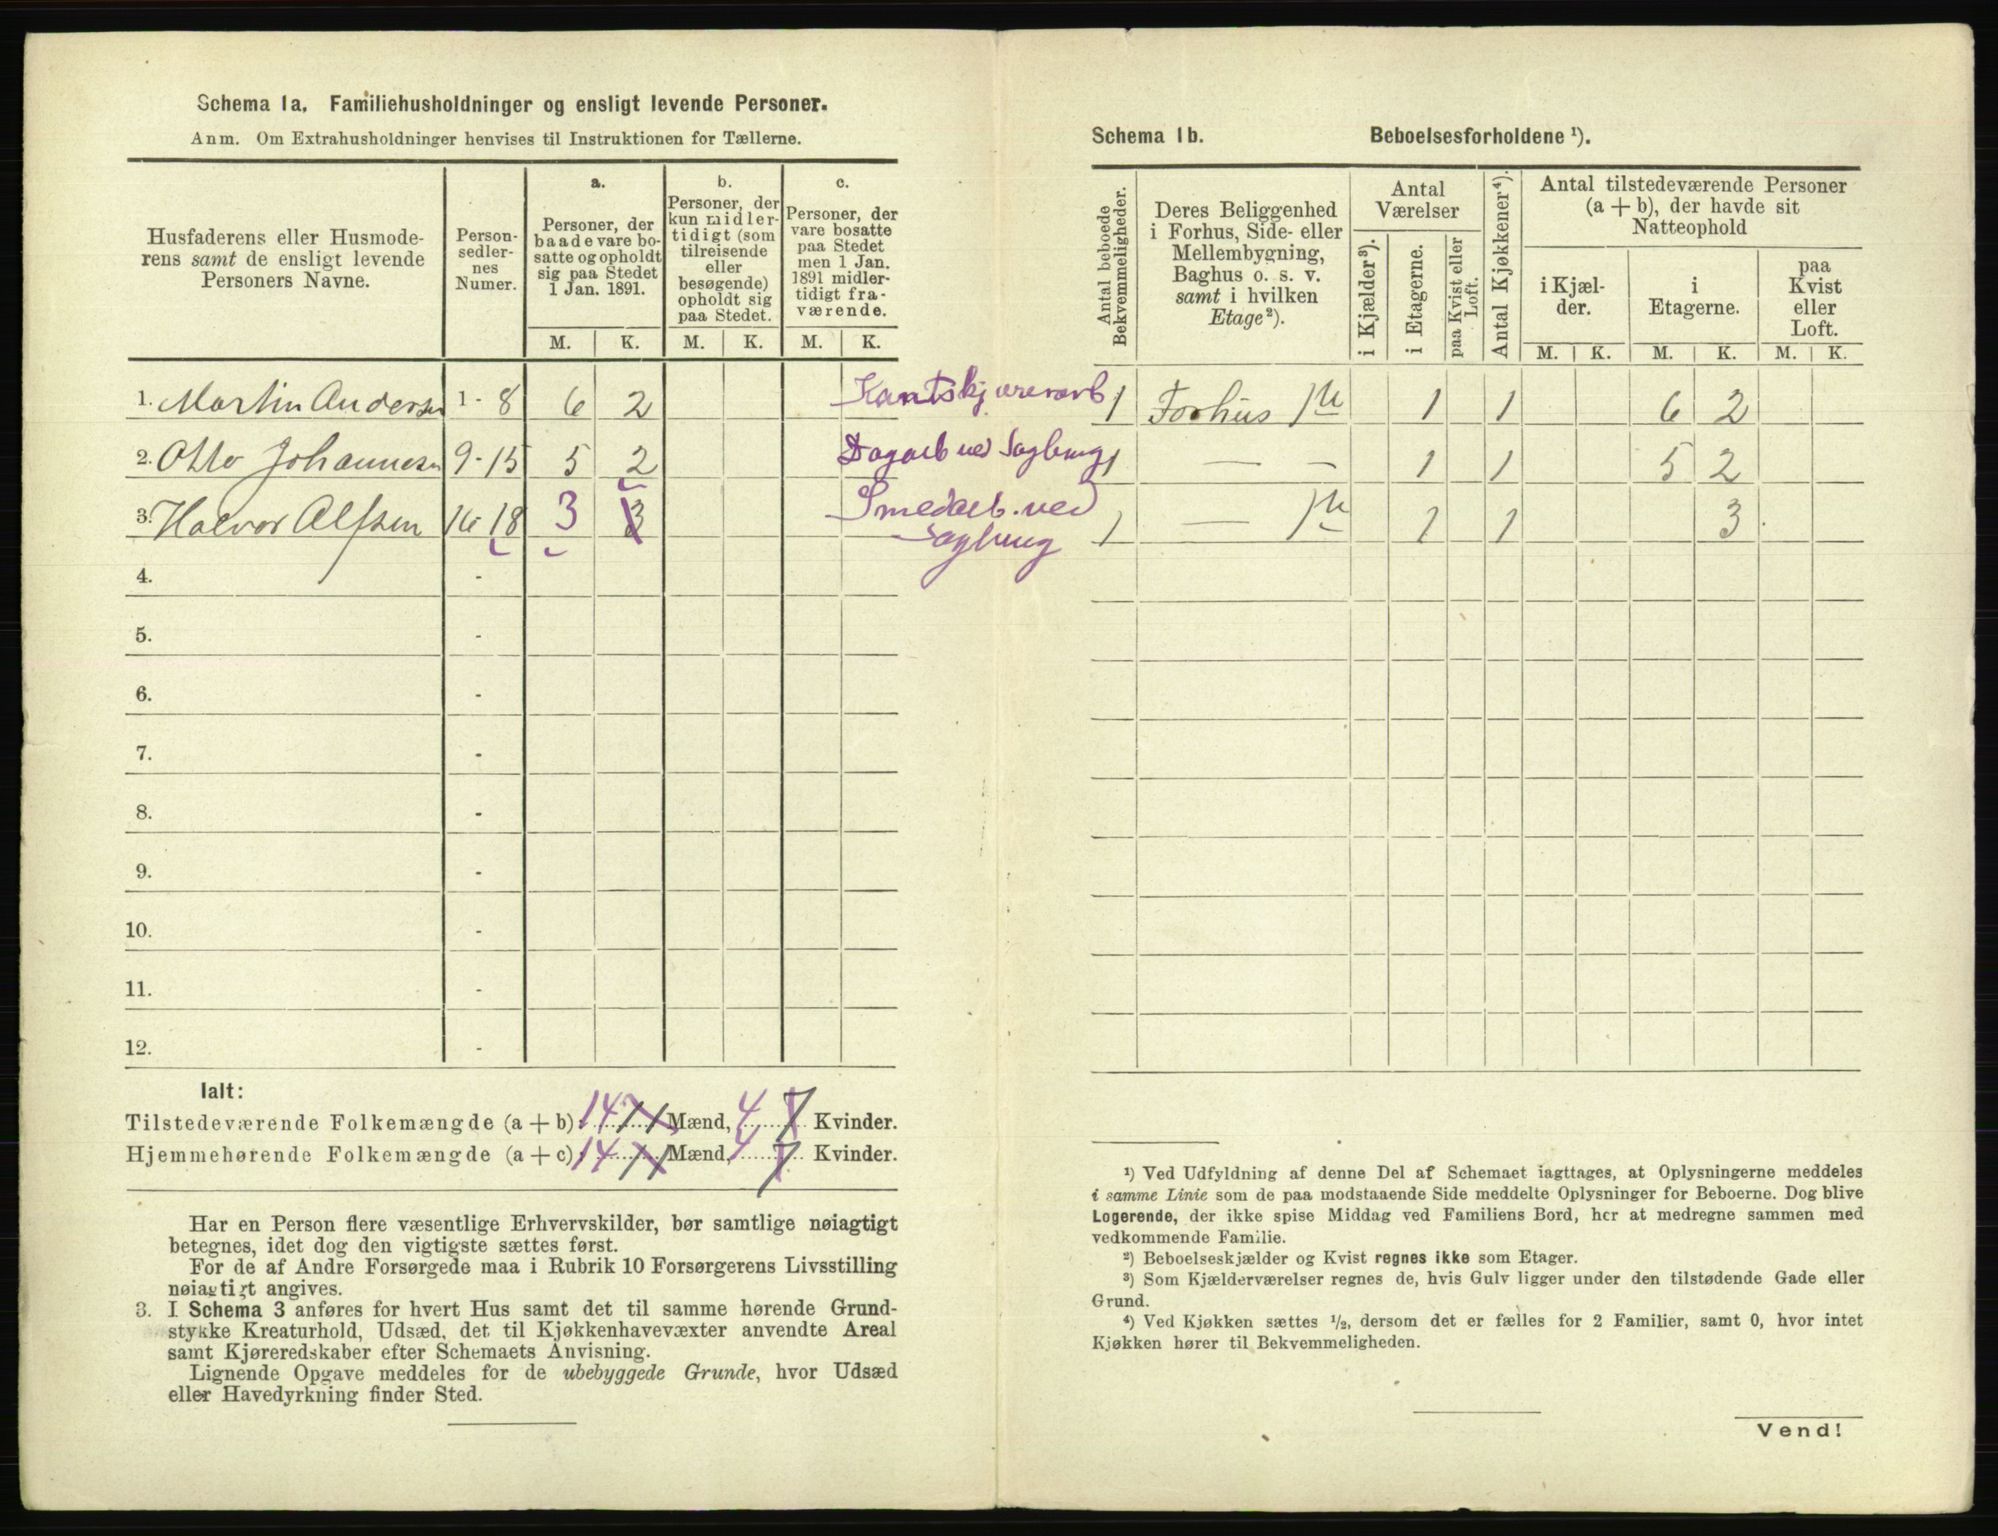 Schema 1a. Familiehusholdninger og ensligt levende Personer.
Anm. Om Extrahusholdninger henvises til Instruktionen for Tællerne.
Husfaderens eller Husmode-
rens samt de ensligt levende
Personers Navne.
Person-
sedler-
nes
Numer.
a.
Personer, der
baade vare bo-
satte og opholdt
sig paa Stedet
1 Jan. 1891.
b.
Personer, der
kun midler-
tidigt (som
tilreisende
eller
besøgende)
opholdt sig
paa Stedet.
c.
Personer, der
vare bosatte
paa Stedet
men 1 Jan.
1891 midler-
tidigt fra-
værende.
M. K. M. K. M. K.
1. Martin Andersen 1 - 8 6 2 Kantskjærerarb
2. Otto Johannesen 9 - 15 5 2 Dagarb ved Sagbrug
3. Halvor Alfsen 16 - 18 3 3 Smedarb. ved
Sagbrug
4. -
5. -
6. -
7. -
8. -
9. -
10. -
11. -
12. -
Ialt:
Tilstedeværende Folkemængde (a + b): 14 11 Mænd, 4 7 Kvinder.
Hjemmehørende Folkemængde (a + c): 14 11 Mænd, 4 7 Kvinder.
Har en Person flere væsentlige Erhvervskilder, bør samtlige nøiagtigt
betegnes, idet dog den vigtigste sættes først.
For de af Andre Forsørgede maa i Rubrik 10 Forsørgerens Livsstilling
nøiagtigt angives.
3. I Schema 3 anføres for hvert Hus samt det til samme hørende Grund-
stykke Kreaturhold, Udsæd, det til Kjøkkenhavevæxter anvendte Areal
samt Kjøreredskaber efter Schemaets Anvisning.
Lignende Opgave meddeles for de ubebyggede Grunde, hvor Udsæd
eller Havedyrkning finder Sted.
Schema 1b. Beboelsesforholdene ¹).
Antal beboede
Bekvemmeligheder.
Deres Beliggenhed
i Forhus, Side- eller
Mellembygning,
Baghus o. s. v.
samt i hvilken
Etage²).
Antal
Værelser
i Kjælder³).
i Etagerne.
paa Kvist eller
Loft.
Antal Kjøkkener⁴).
Antal tilstedeværende Personer
(a + b), der havde sit
Natteophold
i Kjæl-
der.
i
Etagerne.
paa
Kvist
eller
Loft.
M. K. M. K. M. K.
1 Forhus 1ste 1 1 6 2
1 — — 1 1 5 2
1 — 1ste 1 1 3
¹) Ved Udfyldning af denne Del af Schemaet iagttages, at Oplysningerne meddeles
i samme Linie som de paa modstaaende Side meddelte Oplysninger for Beboerne. Dog blive
Logerende, der ikke spise Middag ved Familiens Bord, her at medregne sammen med
vedkommende Familie.
²) Beboelseskjælder og Kvist regnes ikke som Etager.
³) Som Kjælderværelser regnes de, hvis Gulv ligger under den tilstødende Gade eller
Grund.
⁴) Ved Kjøkken sættes ½, dersom det er fælles for 2 Familier, samt 0, hvor intet
Kjøkken hører til Bekvemmeligheden.
Vend!